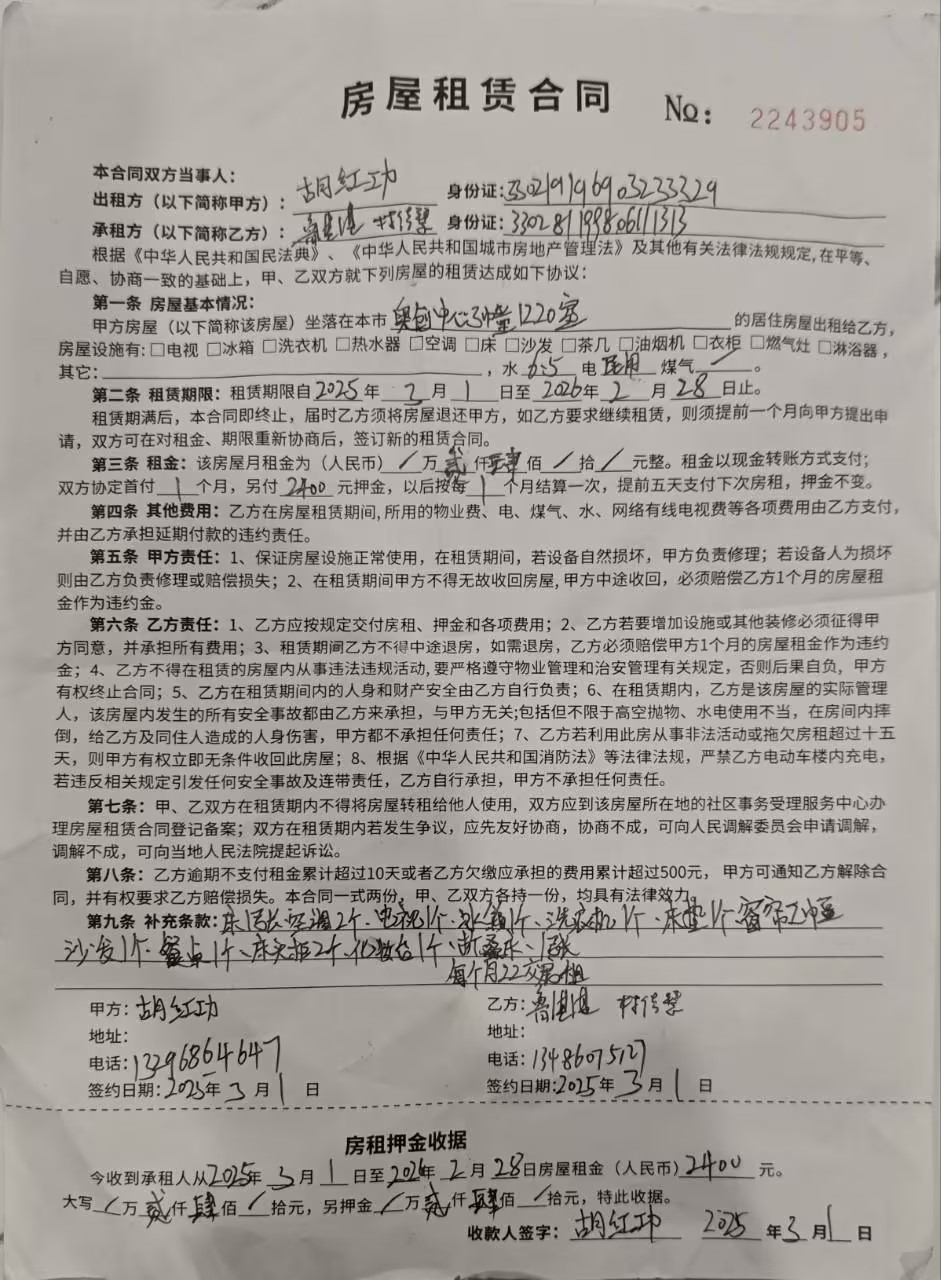 房屋租赁合同 No: 2243905
本合同双方当事人：
出租方（以下简称甲方）：胡红功 身份证：330219196903233329
承租方（以下简称乙方）： 身份证：330281199806111313
根据《中华人民共和国民法典》、《中华人民共和国城市房地产管理法》及其他有关法律法规规定,在平等、
自愿、协商一致的基础上，甲、乙双方就下列房屋的租赁达成如下协议：
第一条 房屋基本情况：
甲方房屋（以下简称该房屋）坐落在本市奥创中心3幢1220室的居住房屋出租给乙方，
房屋设施有:□电视 □冰箱 □洗衣机 □热水器 □空调 □床 □沙发 □茶几 □油烟机 □衣柜 □燃气灶 □淋浴器，
其它： ，水 6.5 电 民用 煤气 / 。
第二条 租赁期限：租赁期限自2025年 3 月 1 日至2026年 2 月 28日止。
租赁期满后，本合同即终止，届时乙方须将房屋退还甲方，如乙方要求继续租赁，则须提前一个月向甲方提出申
请，双方可在对租金、期限重新协商后，签订新的租赁合同。
第三条 租金：该房屋月租金为（人民币） / 万贰仟肆佰 / 拾 / 元整。租金以现金转账方式支付；
双方协定首付 1 个月，另付 2400 元押金，以后按每 1 个月结算一次，提前五天支付下次房租，押金不变。
第四条 其他费用：乙方在房屋租赁期间,所用的物业费、电、煤气、水、网络有线电视费等各项费用由乙方支付，
并由乙方承担延期付款的违约责任。
第五条 甲方责任：1、保证房屋设施正常使用，在租赁期间，若设备自然损坏，甲方负责修理；若设备人为损坏
则由乙方负责修理或赔偿损失；2、在租赁期间甲方不得无故收回房屋,甲方中途收回，必须赔偿乙方1个月的房屋租
金作为违约金。
第六条 乙方责任：1、乙方应按规定交付房租、押金和各项费用；2、乙方若要增加设施或其他装修必须征得甲
方同意，并承担所有费用；3、租赁期间乙方不得中途退房，如需退房，乙方必须赔偿甲方1个月的房屋租金作为违约
金；4、乙方不得在租赁的房屋内从事违法违规活动,要严格遵守物业管理和治安管理有关规定，否则后果自负，甲方
有权终止合同；5、乙方在租赁期间内的人身和财产安全由乙方自行负责；6、在租赁期内，乙方是该房屋的实际管理
人，该房屋内发生的所有安全事故都由乙方来承担，与甲方无关;包括但不限于高空抛物、水电使用不当，在房间内摔
倒，给乙方及同住人造成的人身伤害，甲方都不承担任何责任；7、乙方若利用此房从事非法活动或拖欠房租超过十五
天，则甲方有权立即无条件收回此房屋；8、根据《中华人民共和国消防法》等法律法规，严禁乙方电动车楼内充电，
若违反相关规定引发任何安全事故及连带责任，乙方自行承担，甲方不承担任何责任。
第七条：甲、乙双方在租赁期内不得将房屋转租给他人使用，双方应到该房屋所在地的社区事务受理服务中心办
理房屋租赁合同登记备案；双方在租赁期内若发生争议，应先友好协商，协商不成，可向人民调解委员会申请调解，
调解不成，可向当地人民法院提起诉讼。
第八条：乙方逾期不支付租金累计超过10天或者乙方欠缴应承担的费用累计超过500元，甲方可通知乙方解除合
同，并有权要求乙方赔偿损失。本合同一式两份，甲、乙双方各持一份，均具有法律效力。
第九条 补充条款：床1张、空调2个、电视1个、冰箱1个、洗衣机1个、床垫1个、窗帘
沙发1个、餐桌1个、床头柜2个、化妆台1个、
每个月22交房租
甲方：胡红功 乙方：
地址： 地址：
电话：13296864647 电话：13486075127
签约日期：2025年 3 月 1 日 签约日期：2025年 3 月 1 日
房租押金收据
今收到承租人从2025年 3 月 1 日至2026年 2 月 28日房屋租金（人民币）2400 元。
大写 / 万贰仟肆佰 / 拾元，另押金 / 万贰仟肆佰 / 拾元，特此收据。
收款人签字：胡红功 2025 年 3 月 1 日